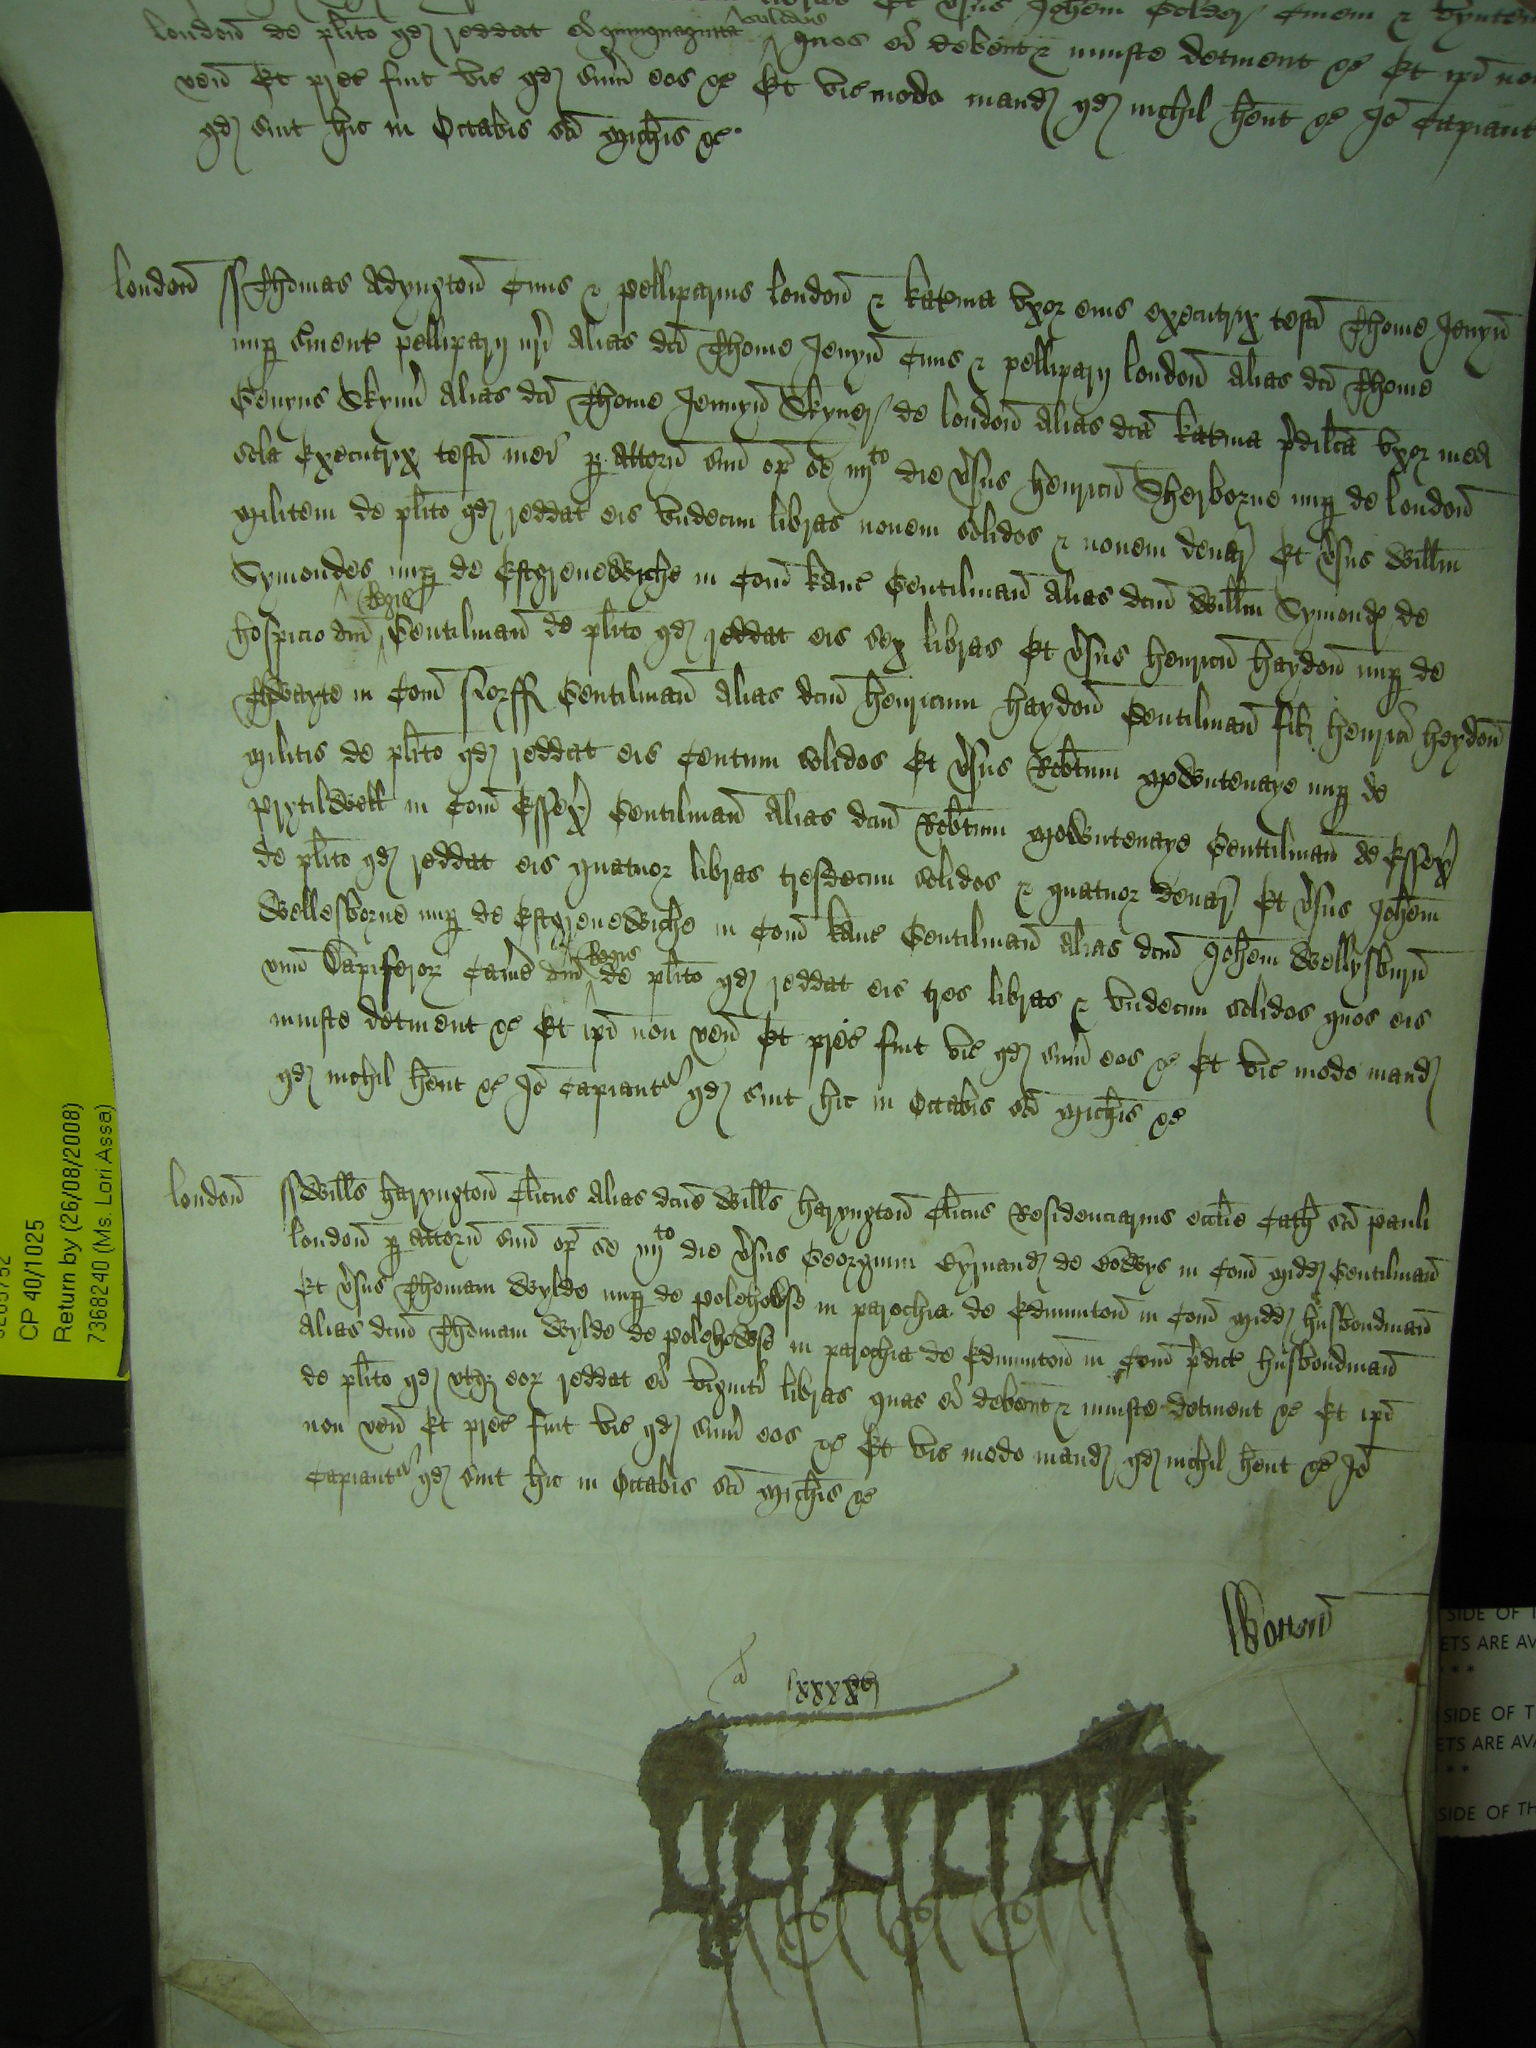 Et vsus Johem Golder Civem & vynten
london de plito qd reddat ei quinquaginta solidos quos ei debent & iniuste detinent &c Et ipi no
ven Et prec fuit vic qd sum eos &c Et vic modo mand qd nichil hent &c Io Capiant
qd sint hic in Octabis sci Michis &c
london ss Thomas Adyngton Civis & pelliparius london & katina vxor eius executrix testi Thome Jenyn
nup Sivient pelliparii nri alias dci Thome Jenyn Civis & pelliparii london alias dci Thome
Genyns Skynn alias dci Thome Jennyn Skyner de london alias dca katina pdilca vxor mea
sola Executrix testi mei p attorn suu op se iiijto die vsus henricu Sherborne nup de london
militem de plito qd reddat eis vndecim libras novem solidos & novem denar Et vsus Willm
Symondes nup de Estgrenewyche in Com kanc Gentilman alias dcm Willm Symondes de
hospicio dni Regis Gentilman de plito qd reddat eis sex libras Et vsus henricu haydon nup de
Thwayte in Com Norff Gentilman alias dcm henricum haydon Gentilman filz henrici heydon
militis de plito qd reddat eis Centum solidos Et vsus Robtum mowntenaye nup de
prytilwell in Com Essex Gentilman alias dcm Robtum mowntenaye Genttilman de Essex
de plito qd reddat eis quatuor libras tresdecim solidos & quatuor denar Et vsus Johem
Wellesborne nup de Estgrenewiche in Com kanc Gentilman alias dcm Johem Wellysburn
vnu Dapiferor Came dni Regis de plito qd reddat eis tres libras & vndecim solidos quos eis
iniuste detinent &c Et ipi non ven Et prec fuit vic qd sum eos &c Et vic modo mand
qd nichil hent &c Io Capiantr qd sint hic in Octabis sci Michis &c
london ss Willms haryngton Clicus alias dcus Willms haryngton Clicus Residenciarius ecclie Cath sci pauli
london p attorn suu op se iiijto die vsus Georgium de in Com Midd Gentilman
Et vsus Thomam Wylde nup de polehowse in parochia de Edmunton in Com Midd husbondman
alias dcm Thomam Wylde de polehowse in parochia de Edmunton in Com pdict husbondman
de plito qd vtq eor reddat ei viginti libras quas ei debent & iniuste detinent &c Et ipi
non ven Et prec fuit vic qd sum eos &c Et vic modo mand qd nichil hent &c Io
Capiantr qd sint hic in Octabis sci Michis &c
CP 40/1025
Return by (26/08/2008)
7368240 (Ms. Lori Assa)
SIDE OF T
ETS ARE AV
SIDE OF T
ETS ARE AVA
SIDE OF TH